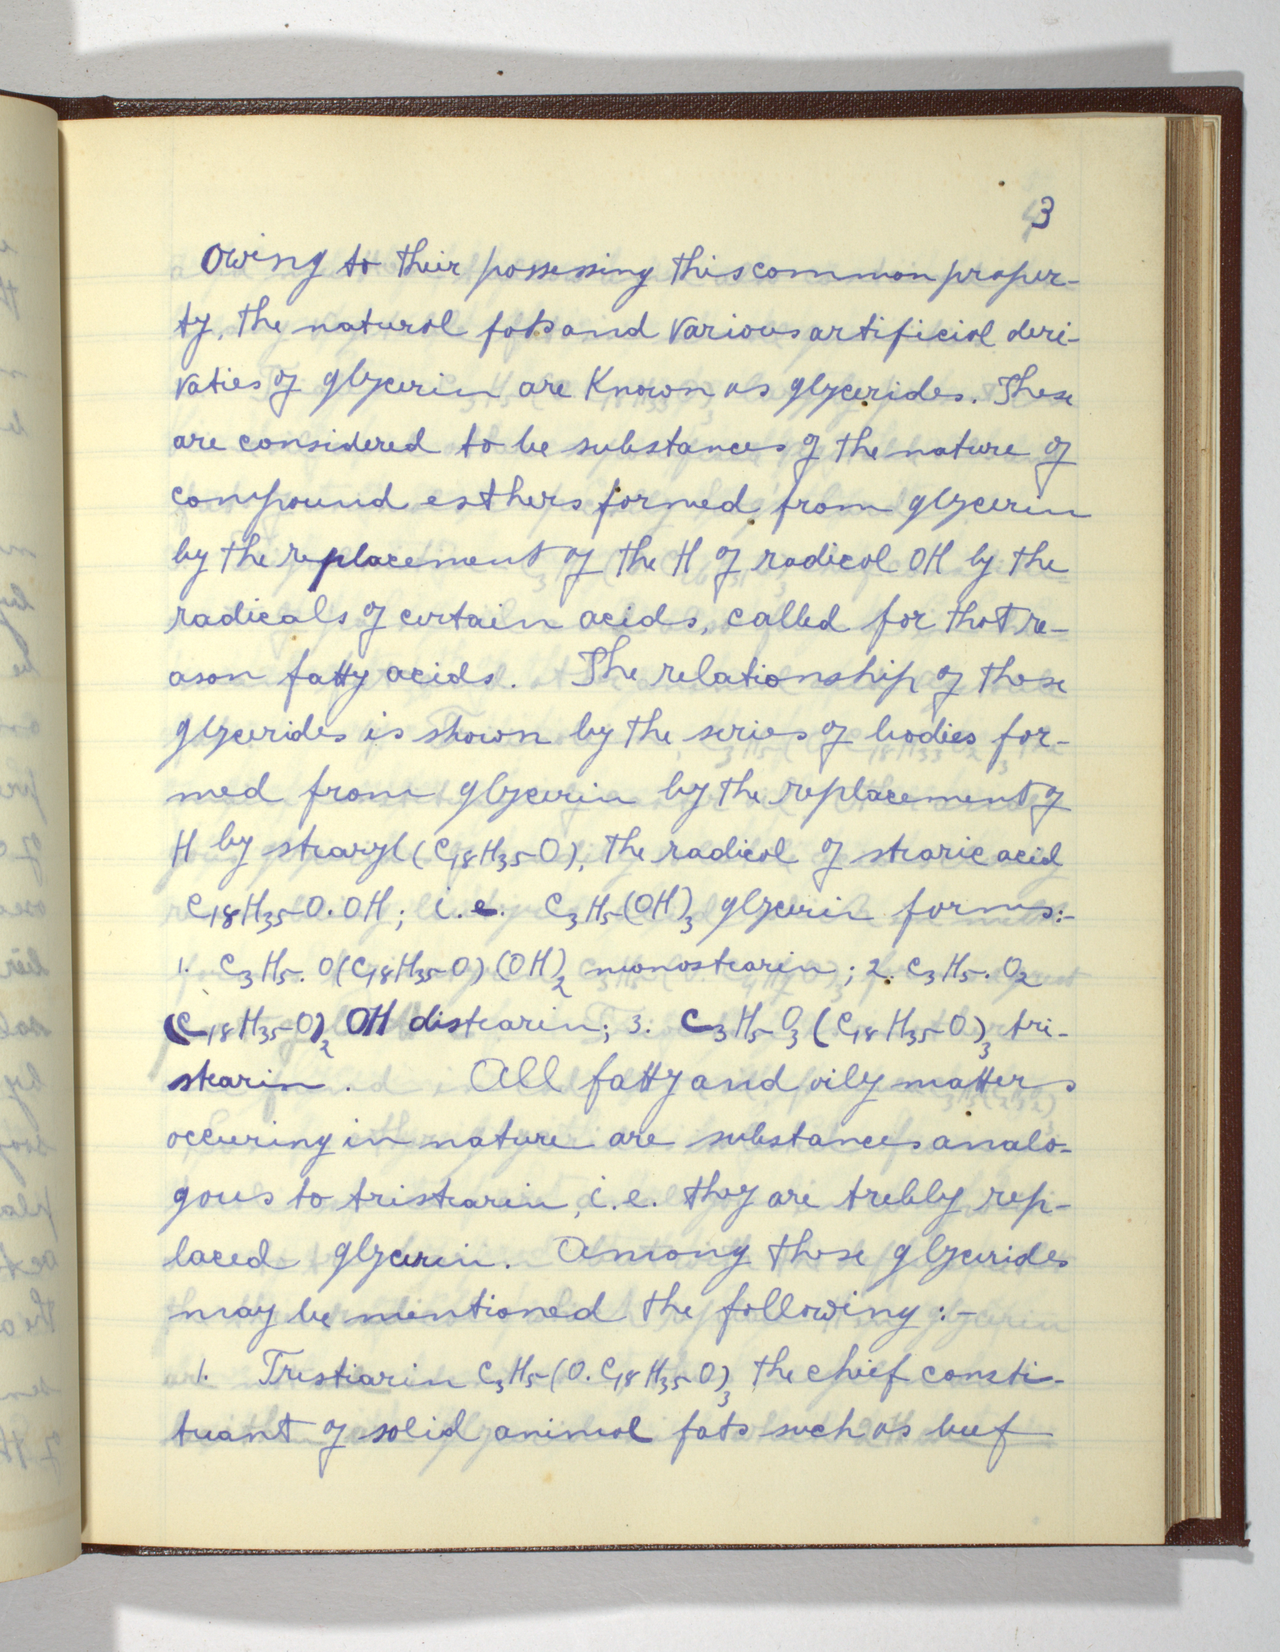 3
Owing to their possessing this common proper-
ty, the natural fats and various artificial deri-
vaties of glycerin are Known as glycerides. These
are considered to be substances of the nature of
compound esthers formed from glycerin
by the replacement of the H of radical OH by the
radicals of certain acids, called for that re-
ason fatty acids. The relationship of those
glycerides is shown by the series of bodies for-
med from glycerin by the replacement of
H by stearyl (C₁₈H₃₅O), the radical of stearic acid
C₁₈H₃₅O.OH; i.e. C₃H₅(OH)₃ glycerin forms:-
1. C₃H₅.O(C₁₈H₃₅O)(OH)₂ monostearin; 2. C₃H₅.O₂
(C₁₈H₃₅O)₂ OH distearin; 3. C₃H₅O₃(C₁₈H₃₅O)₃ tri-
stearin. All fatty and oily matters
occuring in nature are substances analo-
gous to tristearin, i.e. they are trebly rep-
laced glycerin. Among those glycerides
may be mentioned the following:-
1. Trestiarin C₃H₅(O.C₁₈H₃₅O)₃ the chief consti-
tuant of solid animal fats such as beef